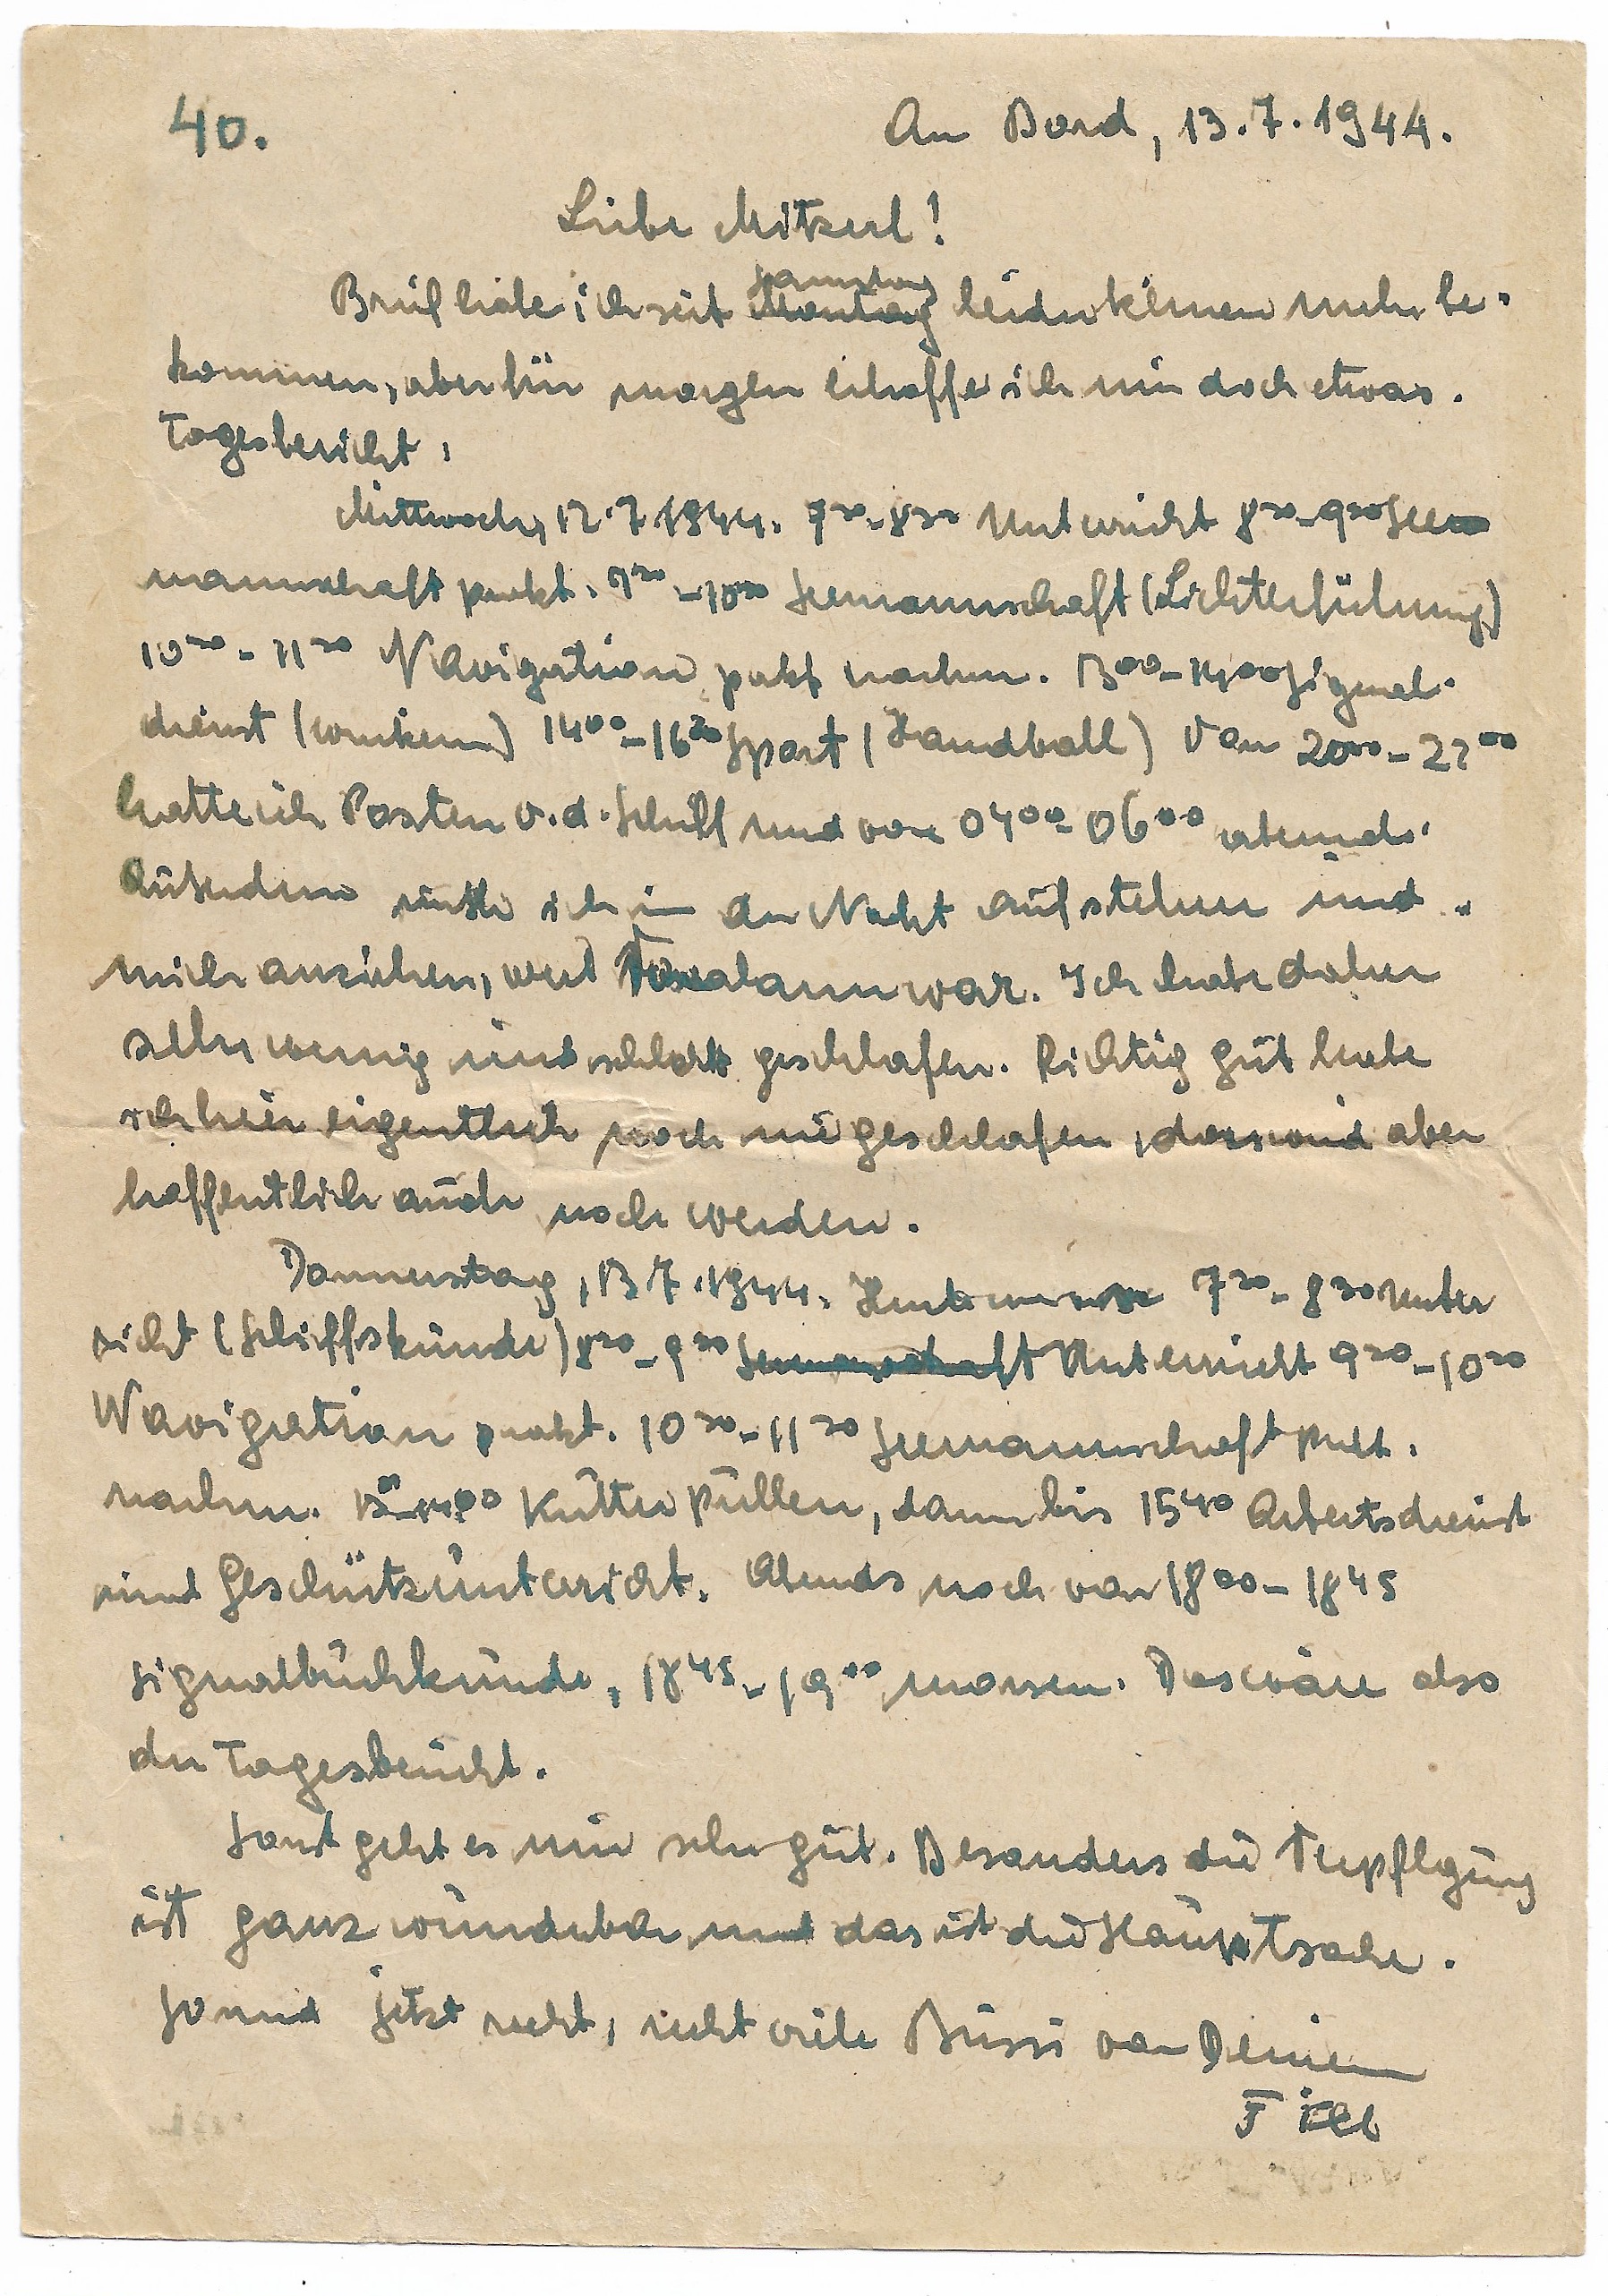 40.
An Bord, 13.7.1944.
Liebe Mitzerl!
Samstag
Brief habe ich seit Montag leider keinen mehr be-
kommen, aber für morgen erhoffe ich mir doch etwas.
Tagesbericht:
Mittwoch, 12.7.1944. 7³⁰-8³⁰ Unterricht 8³⁰-9³⁰ See
mannschaft prakt. 9³⁰-10³⁰ Seemannschaft (Lichterführung)
10³⁰-11³⁰ Navigation prakt nachm. 13⁰⁰-14⁰⁰ Signal-
dienst (winken) 14⁰⁰-16³⁰ Sport (Handball) Von 20⁰⁰-22⁰⁰
hatte ich Posten v.d. Schiff und von 04⁰⁰-06⁰⁰
Außerdem mußte ich in der Nacht aufstehen und
mich anziehen, weil war. Ich habe daher
sehr wenig und schlecht geschlafen. Richtig gut habe
ich hier eigentlich noch nie geschlafen, das wird aber
hoffentlich auch noch werden.
Donnerstag, 13.7.1944. Heute 7³⁰-8³⁰ Unter
richt (Schiffskunde) 8³⁰-9³⁰ Seemannschaft Unterricht 9³⁰-10³⁰
Navigation prakt. 10³⁰-11³⁰ Seemannschaft prakt.
nachm. 13⁰⁰-14⁰⁰ Kutter pullen, dann bis 15⁴⁰ Arbeitsdienst
und Geschützunterricht. Abends noch von 18⁰⁰-18⁴⁵
Signalbuchkunde, 18⁴⁵-19⁰⁰ morsen. Das wäre also
der Tagesbericht.
Sonst geht es mir sehr gut. Besonders die Verpflegung
ist ganz wunderbar und das ist die Hauptsache.
So und jetzt recht, recht viele Bussi von Deinem